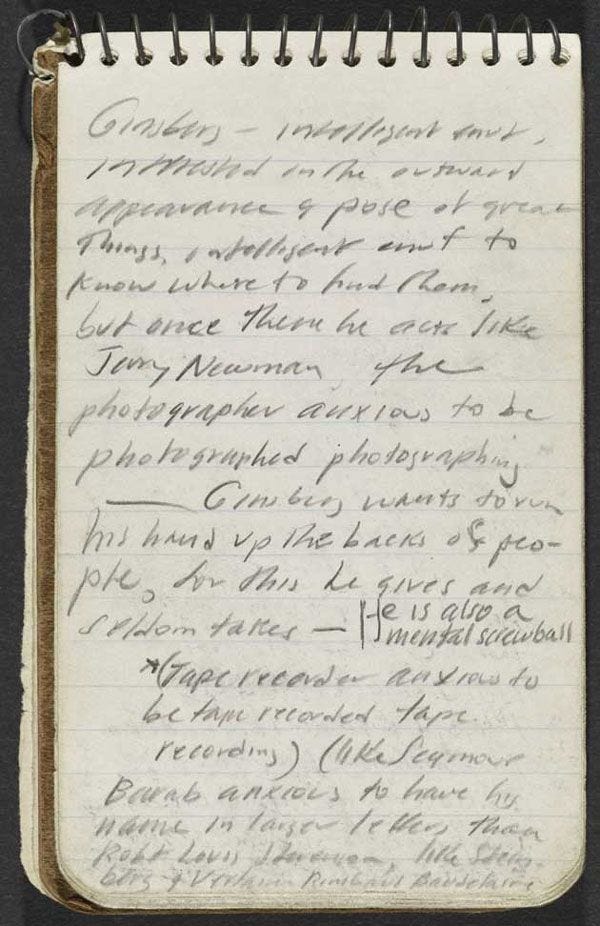 Ginsberg — intelligent enuf,
interested in the outward
appearance & pose of great
things, intelligent enuf to
know where to find them,
but once there he acts like
Jerry Newman, the
photographer anxious to be
photographed photographing
— Ginsberg wants to run
his hand up the backs of peo-
ple, for this he gives and
seldom takes — He is also a
mental screwball
*(Tape recorder anxious to
be tape recorded tape
recording) (like Seymour
Barab anxious to have his
name in larger letters than
Robt Louis Stevenson, like Stein-
berg & Verlaine Rimbaud Baudelaire